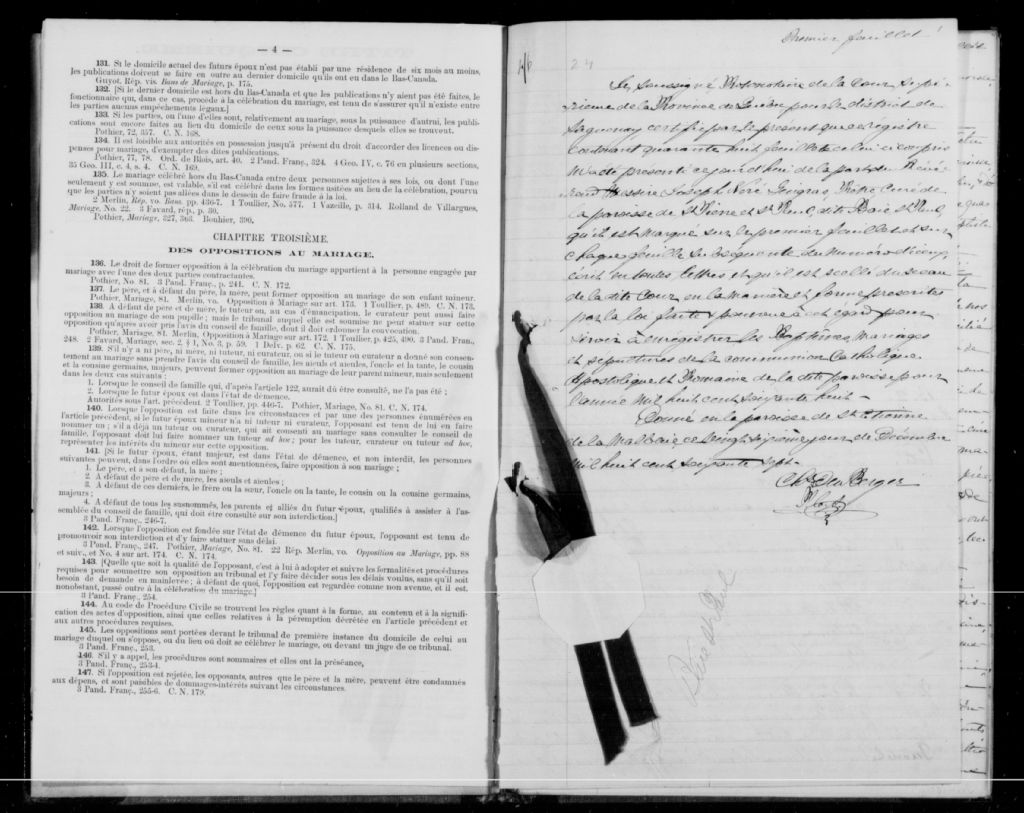 — 4 —
131. Si le domicile actuel des futurs époux n'est pas établi par une résidence de six mois au moins,
les publications doivent se faire en outre au dernier domicile qu'ils ont eu dans le Bas-Canada.
Guyot, Rép. vis. Bans de Mariage, p. 175.
132. [Si le dernier domicile est hors du Bas-Canada et que les publications n'y aient pas été faites, le
fonctionnaire qui, dans ce cas, procède à la célébration du mariage, est tenu de s'assurer qu'il n'existe entre
les parties aucuns empêchements légaux.]
133. Si les parties, ou l'une d'elles sont, relativement au mariage, sous la puissance d'autrui, les publi-
cations sont encore faites au lieu du domicile de ceux sous la puissance desquels elles se trouvent.
Pothier, 72, 357. C. N. 168.
134. Il est loisible aux autorités en possession jusqu'à présent du droit d'accorder des licences ou dis-
penses pour mariage, d'exempter des dites publications.
Pothier, 77, 78. Ord. de Blois, art. 40. 2 Pand. Franç., 324. 4 Geo. IV, c. 76 en plusieurs sections,
35 Geo. III, c. 4, s. 4. C. N. 169.
135. Le mariage célébré hors du Bas-Canada entre deux personnes sujettes à ses lois, ou dont l'une
seulement y est soumise, est valable, s'il est célébré dans les formes usitées au lieu de la célébration, pourvu
que les parties n'y soient pas allées dans le dessein de faire fraude à la loi.
2 Merlin, Rép. vo. Bans. pp. 436-7. 1 Toullier, No. 577. 1 Vazeille, p. 314. Rolland de Villargues,
Mariage, No. 22. 3 Favard, rép., p. 30.
Pothier, Mariage, 327, 363. Bouhier, 390.
CHAPITRE TROISIÈME.
DES OPPOSITIONS AU MARIAGE.
136. Le droit de former opposition à la célébration du mariage appartient à la personne engagée par
mariage avec l'une des deux parties contractantes.
Pothier, No. 81. 3 Pand. Franç., p. 241. C. N. 172.
137. Le père, et à défaut du père, la mère, peut former opposition au mariage de son enfant mineur.
Pothier, Mariage, 81. Merlin, vo. Opposition à Mariage sur art. 173. 1 Toullier, p. 489. C. N. 173.
138. A défaut de père et de mère, le tuteur ou, au cas d'émancipation, le curateur peut aussi faire
opposition au mariage de son pupille; mais le tribunal auquel elle est soumise ne peut statuer sur cette
opposition qu'après avoir pris l'avis du conseil de famille, dont il doit ordonner la convocation.
Pothier, Mariage, 81. Merlin, Opposition à Mariage sur art. 172. 1 Toullier, p. 425, 490. 3 Pand. Fran.,
248. 2 Favard, Mariage, sec. 2, § 1, No. 3, p. 59. 1 Delv. p. 62. C. N. 175.
139. S'il n'y a ni père, ni mère, ni tuteur, ni curateur, ou si le tuteur ou curateur a donné son consen-
tement au mariage sans prendre l'avis du conseil de famille, les aïeuls et aïeules, l'oncle et la tante, le cousin
et la cousine germains, majeurs, peuvent former opposition au mariage de leur parent mineur, mais seulement
dans les deux cas suivants:
1. Lorsque le conseil de famille qui, d'après l'article 122, aurait dû être consulté, ne l'a pas été;
2. Lorsque le futur époux est dans l'état de démence.
Autorités sous l'art. précédent. 2 Toullier, pp. 446-7. Pothier, Mariage, No. 81. C. N. 174.
140. Lorsque l'opposition est faite dans les circonstances et par une des personnes énumérées en
l'article précédent, si le futur époux mineur n'a ni tuteur ni curateur, l'opposant est tenu de lui en faire
nommer un; s'il a déjà un tuteur ou curateur, qui ait consenti au mariage sans consulter le conseil de
famille, l'opposant doit lui faire nommer un tuteur ad hoc; pour les tuteur, curateur ou tuteur ad hoc,
représenter les intérêts du mineur sur cette opposition.
141. [Si le futur époux, étant majeur, est dans l'état de démence, et non interdit, les personnes
suivantes peuvent, dans l'ordre où elles sont mentionnées, faire opposition à son mariage;
1. Le père, et à son défaut, la mère;
2. A défaut de père et de mère, les aïeuls et aïeules;
3. A défaut de ces derniers, le frère ou la sœur, l'oncle ou la tante, le cousin ou la cousine germains,
majeurs;
4. A défaut de tous les susnommés, les parents et alliés du futur époux, qualifiés à assister à l'as-
semblée du conseil de famille, qui doit être consulté sur son interdiction.]
3 Pand. Franç., 246-7.
142. Lorsque l'opposition est fondée sur l'état de démence du futur époux, l'opposant est tenu de
promouvoir son interdiction et d'y faire statuer sans délai.
3 Pand. Franç., 247. Pothier, Mariage, No. 81. 22 Rép. Merlin, vo. Opposition au Mariage, pp. 88
et suiv., et No. 4 sur art. 174. C. N. 174.
143. [Quelle que soit la qualité de l'opposant, c'est à lui à adopter et suivre les formalités et procédures
requises pour soumettre son opposition au tribunal et l'y faire décider sous les délais voulus, sans qu'il soit
besoin de demande en mainlevée; à défaut de quoi, l'opposition est regardée comme non avenue, et il est,
nonobstant, passé outre à la célébration du mariage.]
3 Pand. Franç., 254.
144. Au code de Procédure Civile se trouvent les règles quant à la forme, au contenu et à la signifi-
cation des actes d'opposition, ainsi que celles relatives à la péremption décrétée en l'article précédent et
aux autres procédures requises.
145. Les oppositions sont portées devant le tribunal de première instance du domicile de celui au
mariage duquel on s'oppose, ou du lieu où doit se célébrer le mariage, ou devant un juge de ce tribunal.
3 Pand. Franç., 253.
146. S'il y a appel, les procédures sont sommaires et elles ont la préséance,
3 Pand. Franç., 253-4.
147. Si l'opposition est rejetée, les opposants, autres que le père et la mère, peuvent être condamnés
aux dépens, et sont passibles de dommages-intérêts suivant les circonstances.
3 Pand. Franç., 255-6. C. N. 179.
Premier feuillet
24
Je, soussigné Protonotaire de la Cour Supé-
rieure de la Province de Québec pour le district de
Saguenay certifie par le présent que ce régistre
contenant quarante huit feuillets celui ci compris
m'a été présenté ce jour d'hui de la part du Révé-
rend Messire Joseph Néré Gingras Prêtre Curé de
la paroisse de St Pierre et St Paul, dite Baie St Paul,
qu'il est marqué sur le premier feuillet et sur
chaque feuille subséquente du numéro d'iceux
écrit en toutes lettres et qu'il est scellé du sceau
de la dite Cour en la manière et forme prescrites
par la loi faite et pourvue à cet égard pour
servir à enrégistrer les Baptêmes, Mariages
et sépultures de la communion Catholique
Apostolique et Romaine de la dite paroisse pour
l'année mil huit cent soixante huit.
Donné en la paroisse de St Etienne
de la Malbaie ce vingt sixième jour de Décembre
mil huit cent soixante sept.
Chs Du Berger
Baie St Paul